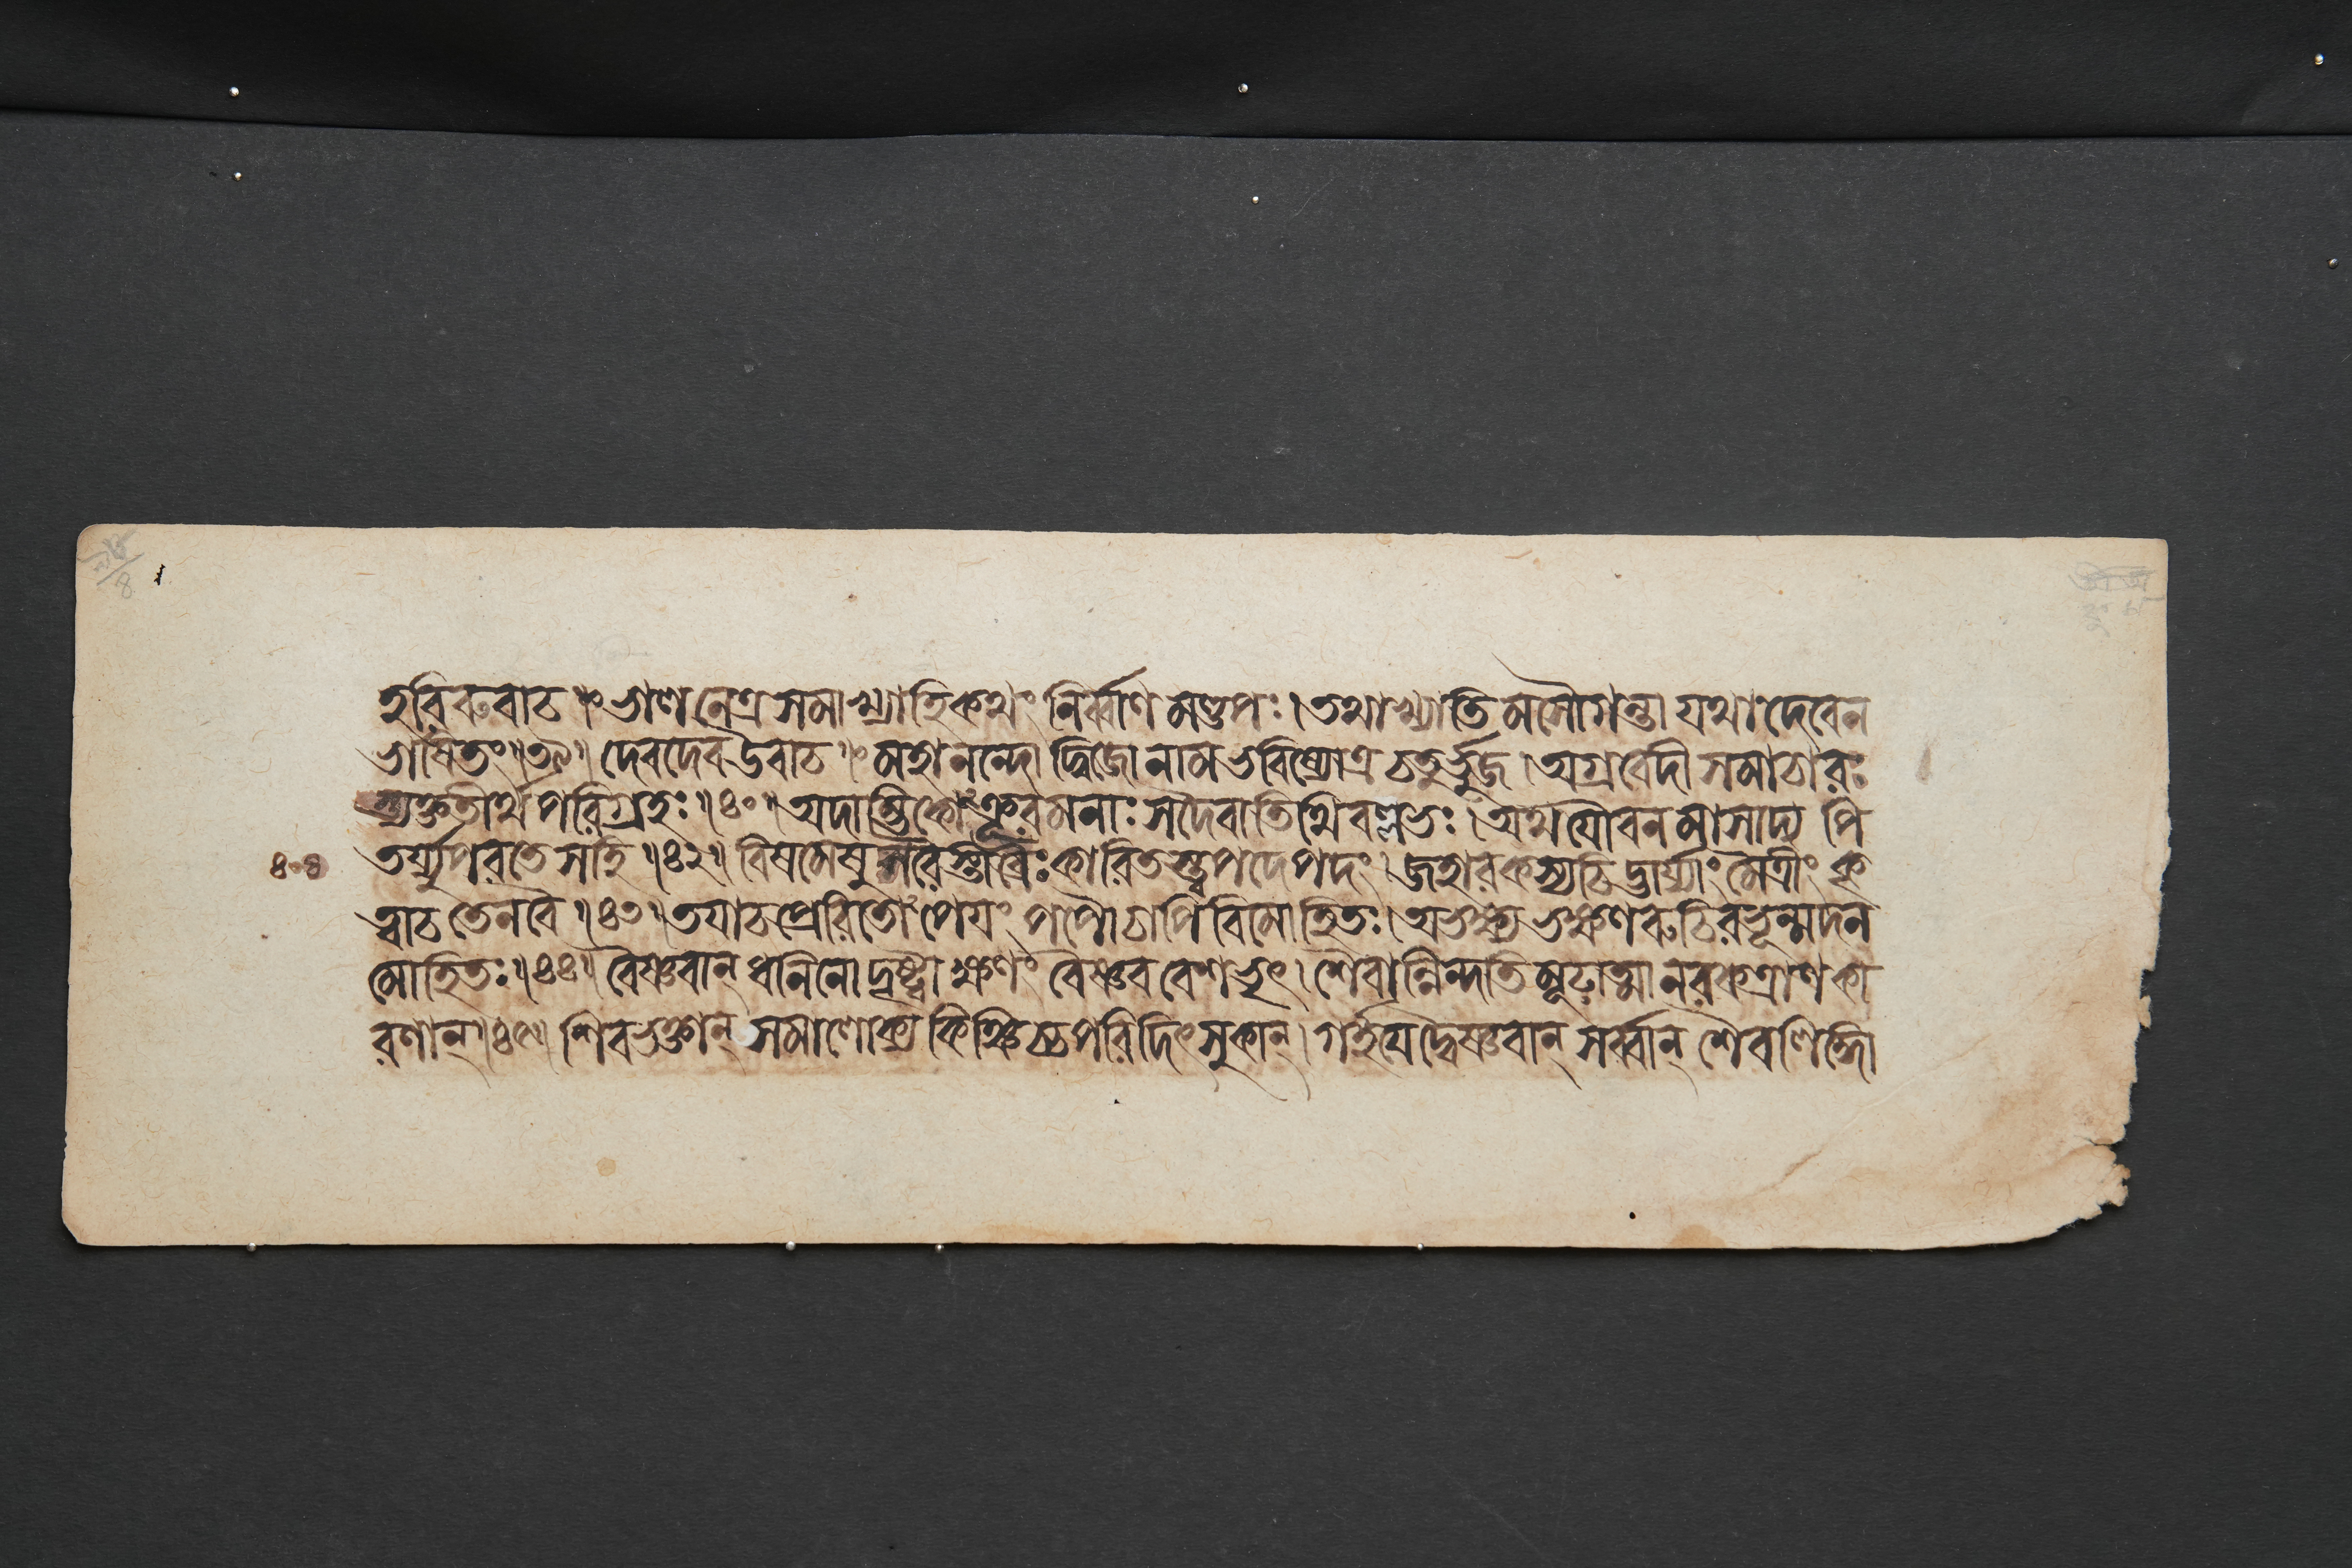 হরিরুবাচ ॥ ভাণ নেত্র সমাখ্যাহি কথং নির্ব্বাণ মণ্ডপঃ । তথাখ্যাতি মসৌ গন্তা যথা দেবেন
ভাষিতং ॥ ৩৯ ॥ দেবদেব উবাচ ॥ মহানন্দো দ্বিজো নাম ভবিষ্যোত্র চতুর্ভুজ । অগ্রবেদী সমাচারঃ
ত্যক্ততীর্থ পরিগ্রহঃ ॥ ৪০ ॥ অদাম্ভিকো ঽক্রূরমনাঃ সদৈবাতিথিবল্লভঃ । অথ যৌবন মাসাদ্য পি
তর্য্যুপরতে সহি ॥ ৪২ ॥ বিষমেষু শরৈস্তীব্রৈঃ কারিতস্ত্বপদে পদং । জহার কস্যচিদ্ভার্য্যাং মৈত্রীং কৃ
ত্বাচ তেন বৈ ॥ ৪৩ ॥ তয়াচ প্রেরিতো ঽপেয়ং পপৌ চাপি বিমোহিতঃ । অভক্ষ্য ভক্ষণ রুচি রভূন্মদন
মোহিতঃ ॥ ৪৪ ॥ বৈষ্ণবান্ ধনিনো দৃষ্ট্বা ক্ষণং বৈষ্ণব বেশভৃৎ । শৈবান্নিন্দতি মূঢ়াত্মা নরক ত্রাণ কা
রণান্ ॥ ৪৫ ॥ শিবভক্তান্ সমালোক্য কিঞ্চিচ্চ পরিদিৎসুকান্ । গর্হয়েদ্বৈষ্ণবান্ সর্ব্বান্ শৈব লিঙ্গো
৪০৪